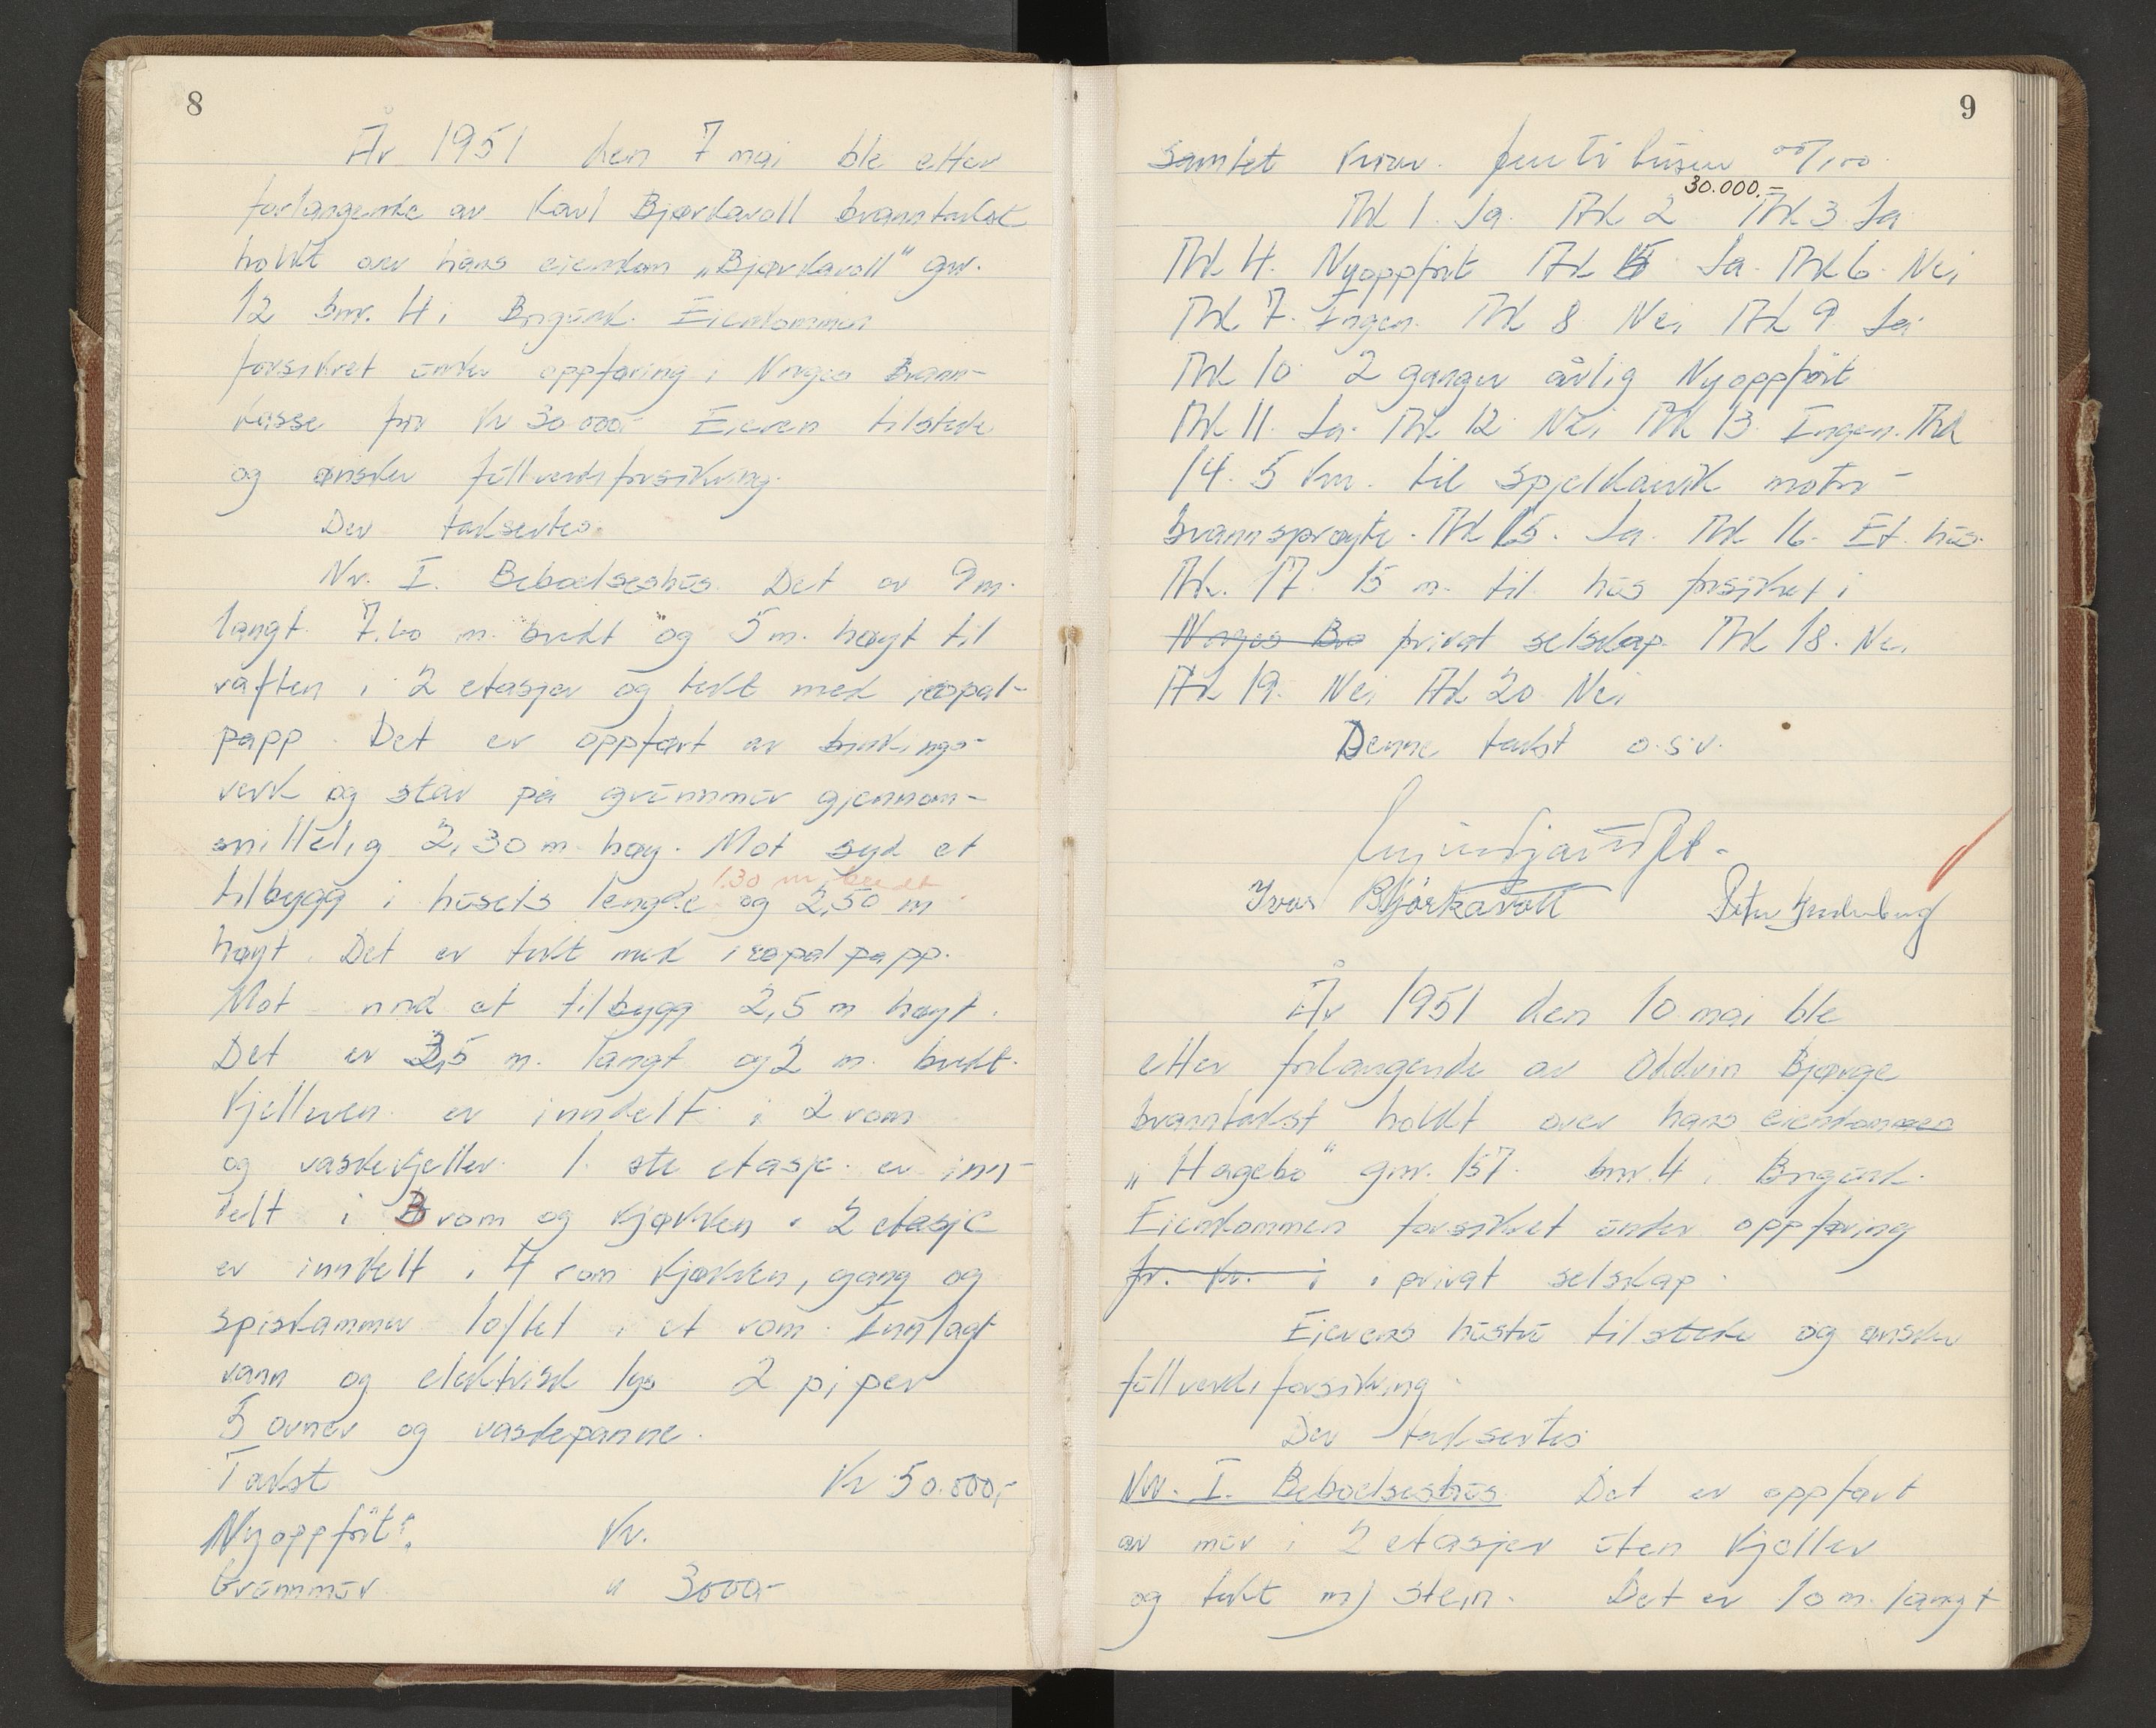 8
År 1951 den 7 mai ble etter
forlangende av Karl Bjørkavoll branntakst
holdt over hans eiendom „Bjørkavoll" gnr.
12 bnr. 4 i Borgund. Eiendommen
forsikret under oppføring i Norges Brann-
kasse for Kr 30.000,- Eieren tilstede
og ønsker fullverdiforsikring.
Der taksertes.
Nr. I. Beboelseshus. Det er 9 m.
langt 7.60 m. bredt og 5 m. høyt til
raften i 2 etasjer og tekt med icopal-
papp. Det er oppført av bindings-
verk og står på grunnmur gjennom-
snittelig 2,30 m høy. Mot syd et
1.30 m bredt
tilbygg i husets lengde og 2,50 m
høyt. Det er tekt med icopal papp.
Mot nord et tilbygg 2,5 m høyt.
Det er 3,5 m. langt og 2 m. bredt.
Kjelleren er inndelt i 2 rom
og vaskekjeller. 1. ste etasje er inn-
delt i 3 rom og kjøkken. 2 etasje
er inndelt i 4 rom kjøkken, gang og
spiskammer loftet i et rom. Innlagt
vann og elektrisk lys 2 piper
5 ovner og vaskepanne.
Takst Kr 50.000,-
Nyoppført: Kr.
Grunnmur " 3000,-
9
Samlet Kroner femti tusen 00/100
30.000.-
Pkt 1. Ja. Pkt 2 Pkt 3 Ja
Pkt 4. Nyoppført Pkt 5 Ja. Pkt 6. Nei
Pkt 7. Ingen. Pkt 8 Nei Pkt 9 Ja
Pkt 10 2 ganger årlig Nyoppført
Pkt 11. Ja. Pkt 12 Nei Pkt 13 Ingen. Pkt
14. 5 km. til Spjelkavik motor-
brannsprøyte. Pkt 15. Ja. Pkt 16. Et hus.
Pkt. 17 15 m. til hus forsikret i
Norges Br privat selskap. Pkt 18. Nei
Pkt 19. Nei Pkt 20 Nei
Denne takst o.s.v.
Ivar Bjørkavoll Peter
År 1951 den 10 mai ble
etter forlangende av Oddvin Bjørge
branntakst holdt over hans eiendommen
„Hagebø" gnr. 157. bnr. 4 i Borgund.
Eiendommen forsikret under oppføring
for. Kr. i i privat selskap.
Eierens hustru tilstede og ønsker
fullverdiforsikring.
Der taksertes
Nr. I. Beboelseshus Det er oppført
av mur i 2 etasjer uten kjeller
og tekt m/ stein. Det er 10 m. langt